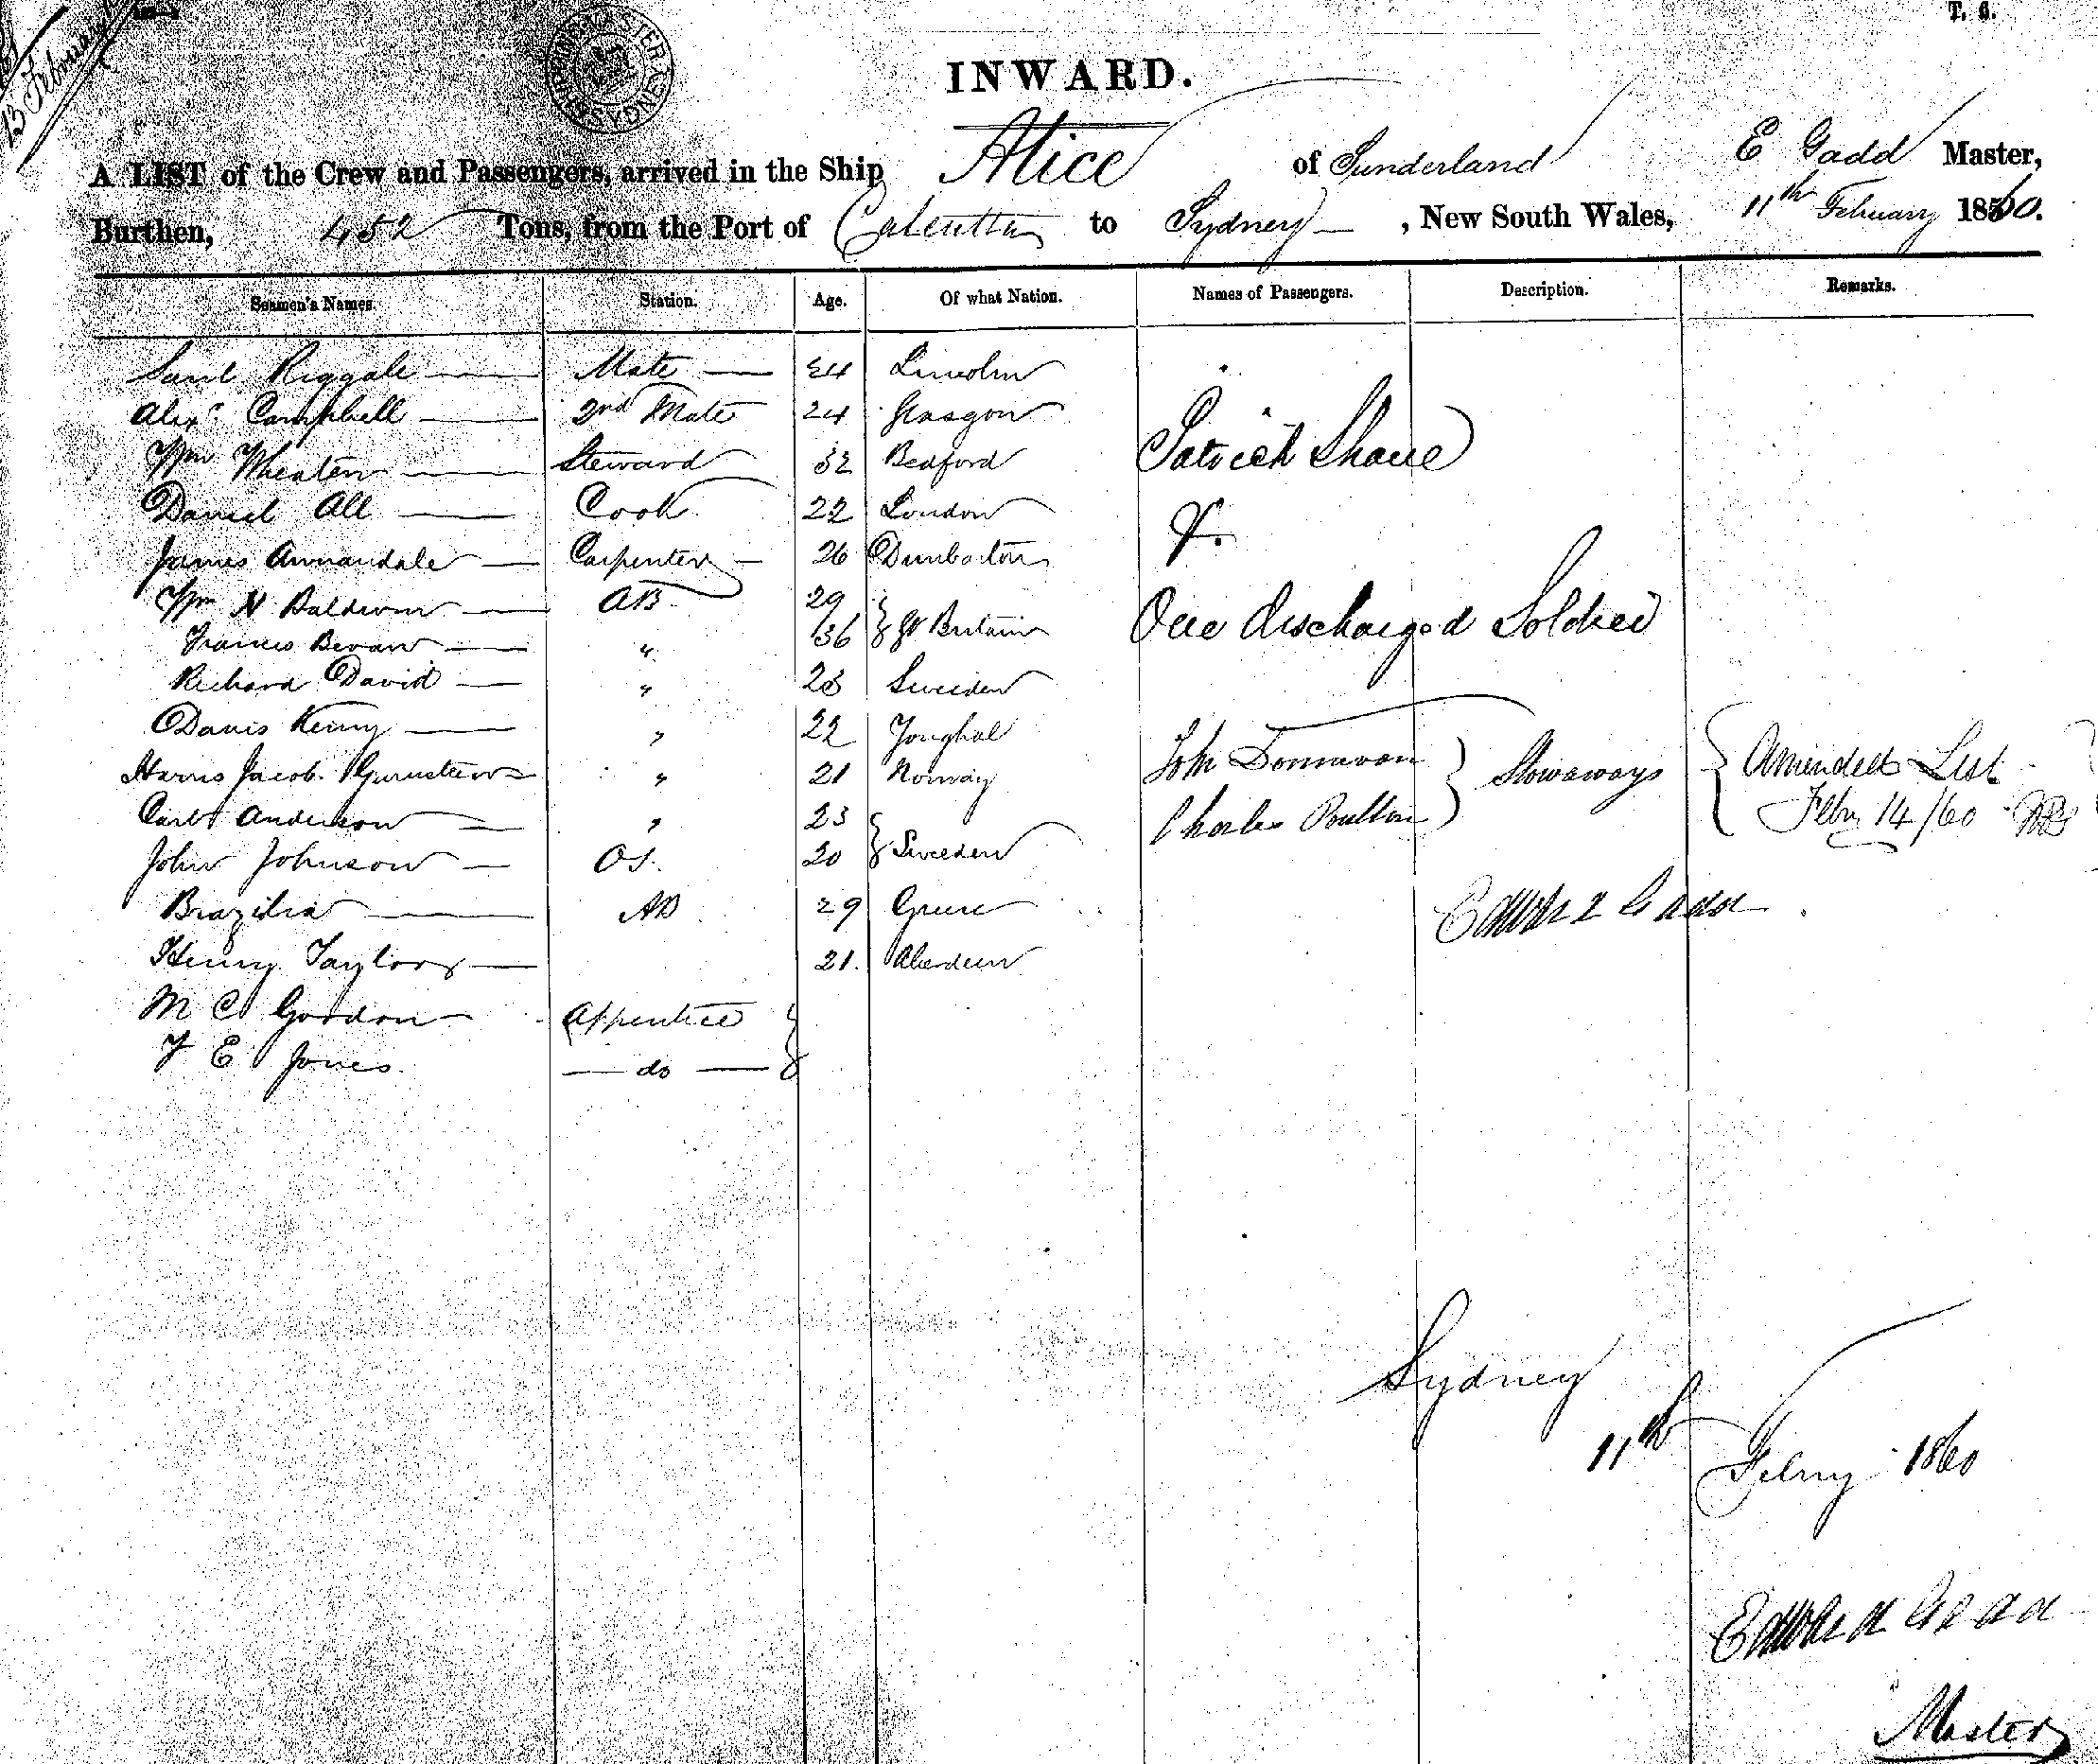 T. G.
13 February
INWARD.
A LIST of the Crew and Passengers, arrived in the Ship Alice of Sunderland E Gadd Master,
Burthen, 452 Tons, from the Port of Calcutta to Sydney , New South Wales, 11th February 1860.
Seamen's Names. Station. Age. Of what Nation. Names of Passengers. Description. Remarks.
Saml Riggall Mate 24 Lincoln
Alexr Campbell 2nd Mate 24 Glasgow
Wm Wheaten Steward 32 Bedford Patrick
Daniel All Cook 22 London &
James Annandale Carpenter 26 Dumbarton
Wm N Baldwin AB 29 } Gt Britain One discharged Soldier
Francis Bevan " 36
Richard David " 23 Sweden
Davis Kenny " 22 Youghal John Donnavan } Stowaways { Amended List
Jacob " 21 Norway Charles Poulton Feby 14/60
Carl Anderson " 23 } Sweden
John Johnson OS. 20
Brazilia AB 29 Greece Edward Gadd
Henry Taylor 21. Aberdeen
M C Gordon Apprentice }
T E Jones do
Sydney
11th Febry 1860
Edward Gadd
Master